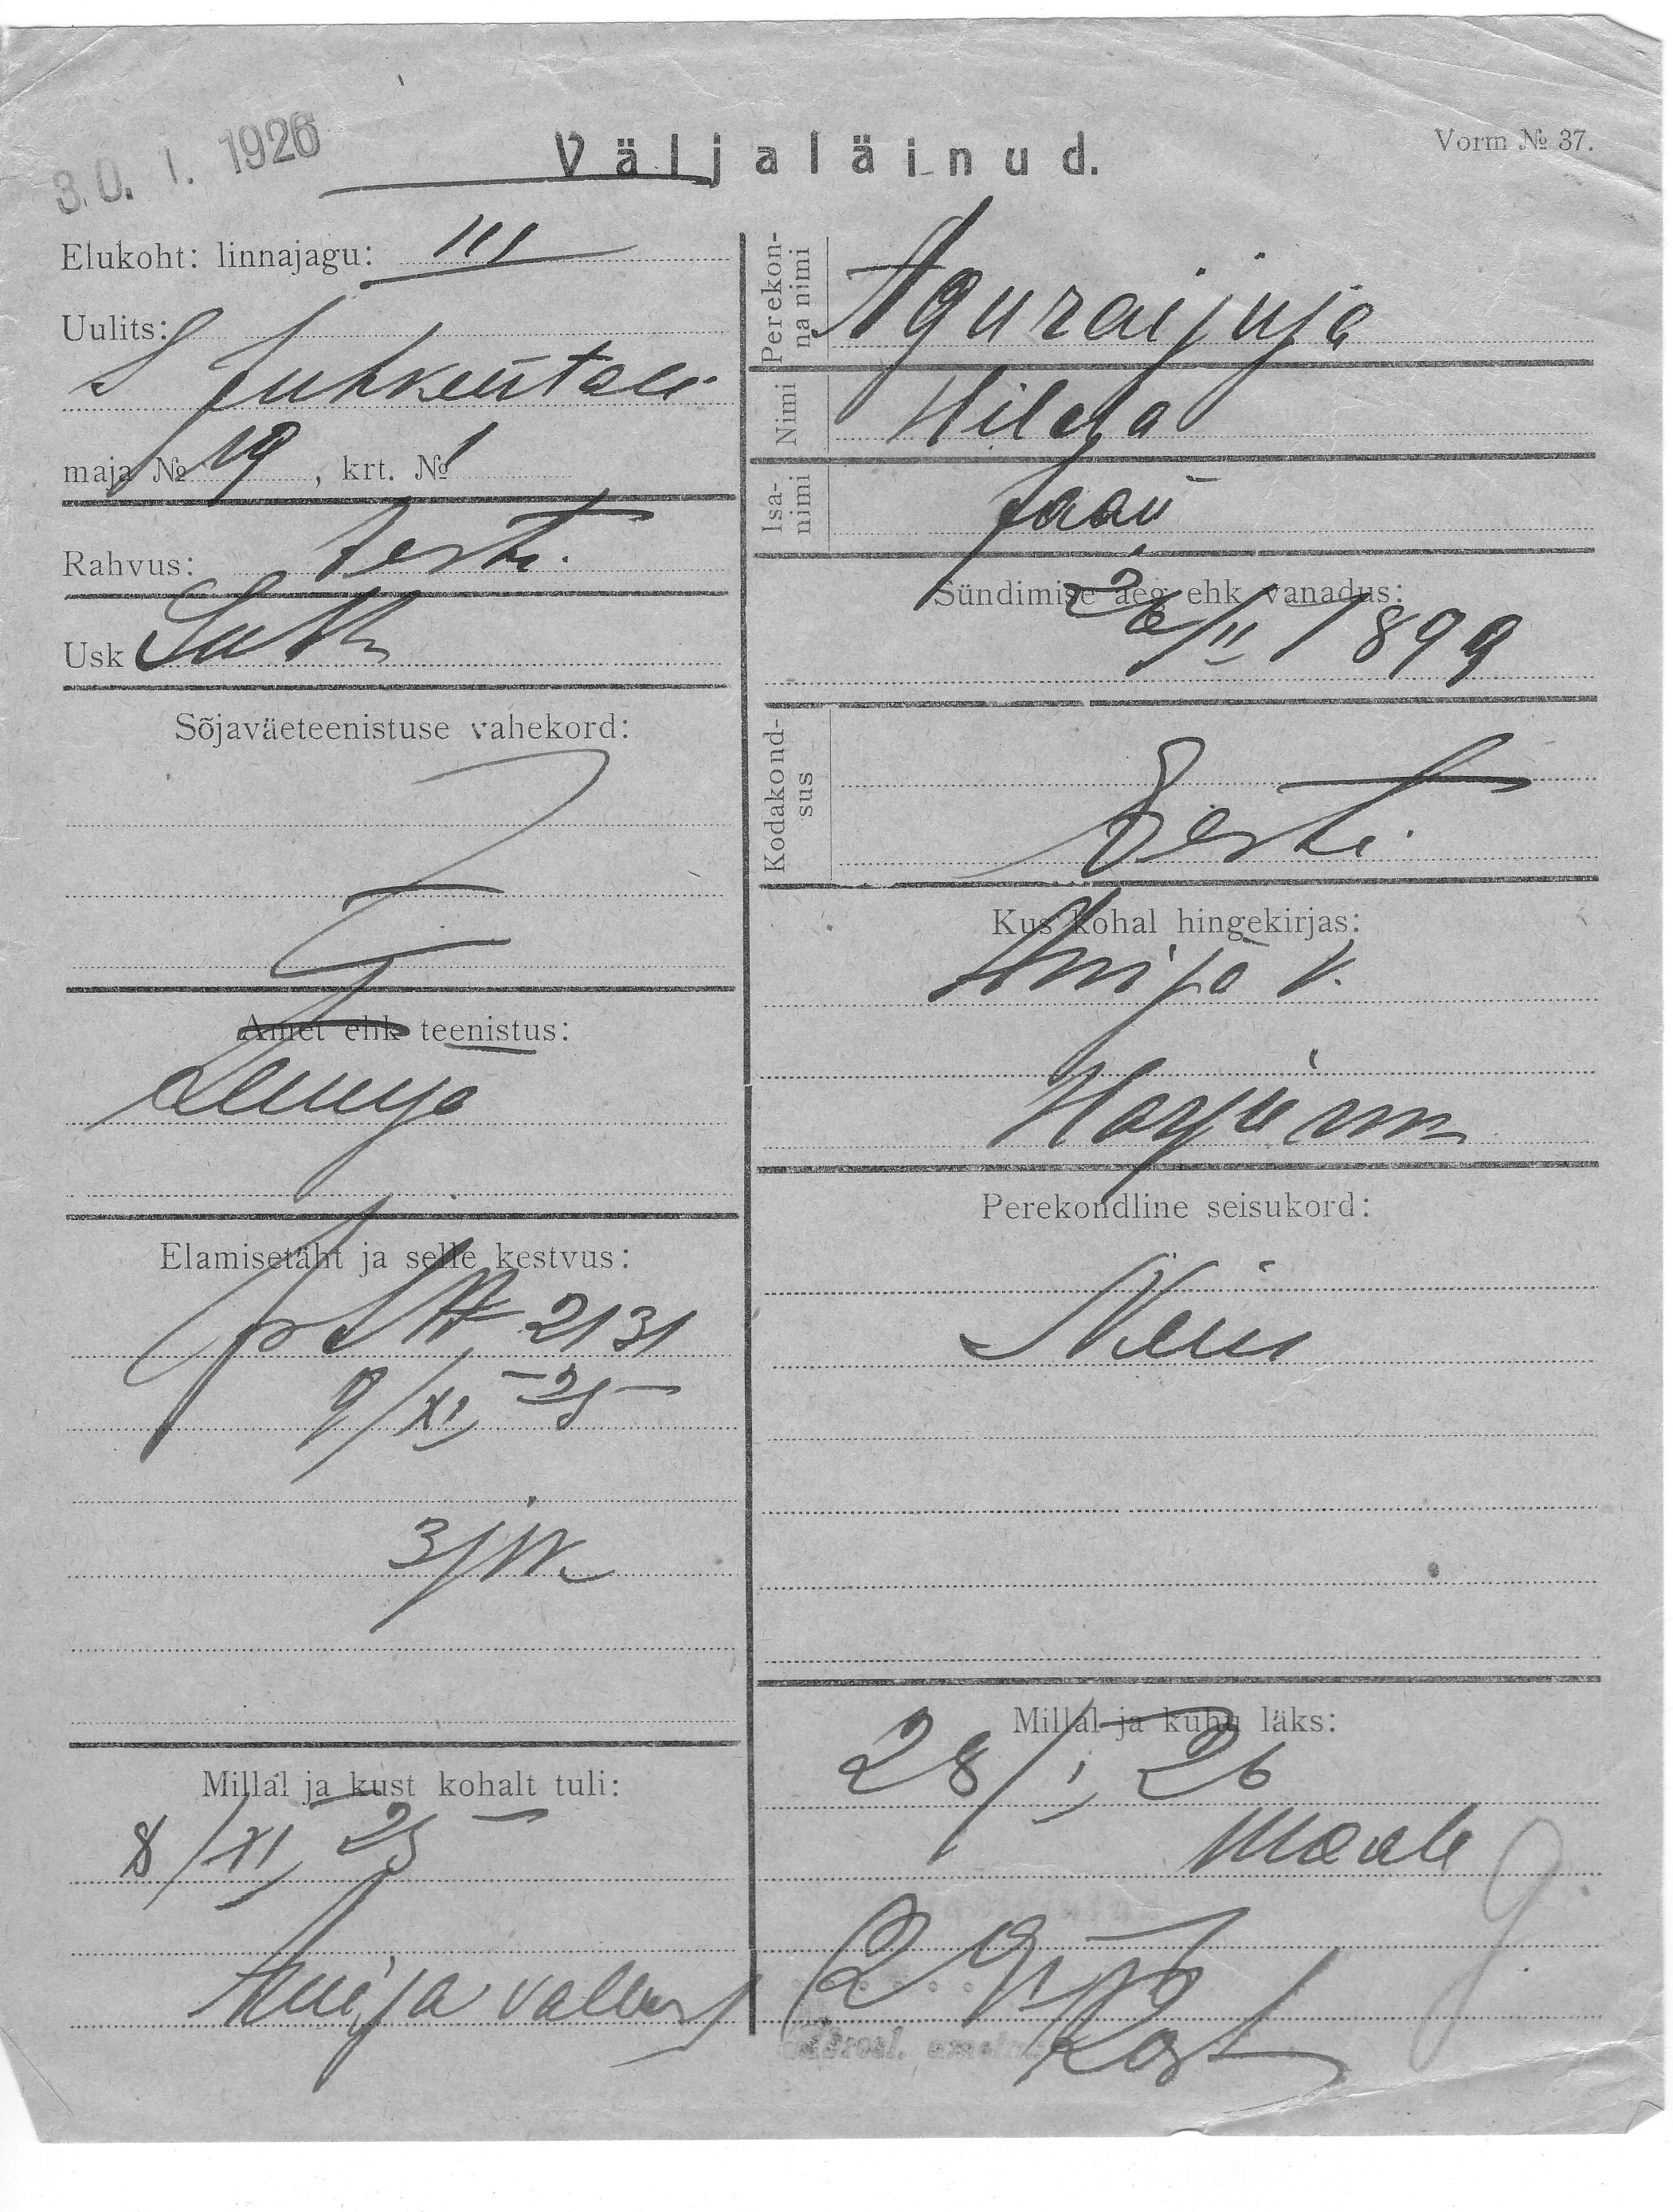 30. I. 1926
Väljaläinud.
Vorm № 37.
Elukoht: linnajagu: III
Uulits: S
Juhkentali
maja № 19, krt. № 1
Rahvus: Eesti.
Usk Luth
Sõjaväeteenistuse vahekord:
Amet ehk teenistus:
Elamisetäht ja selle kestvus:
2131
9/XI 25
Millal ja kust kohalt tuli:
8/XI 25
Anija vallast
Perekon-
na nimi
Aguraijuja
Nimi Hilda
Isa-
nimi
Jaan
Sündimise aeg ehk vanadus:
26/II 1899
Kodakond-
sus
Eesti.
Kus kohal hingekirjas:
Anija v.
Harju m
Perekondline seisukord:
Neiu
Millal ja kuhu läks:
28/I 26
Maale